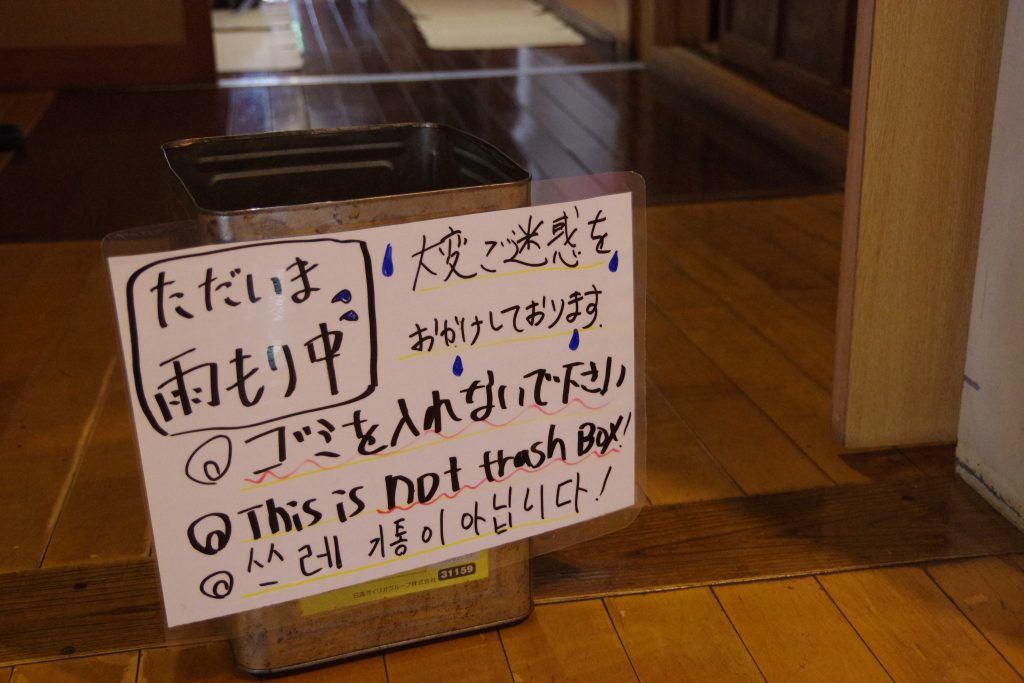 ただいま
雨もり中
大変ご迷惑を
おかけしております
ゴミを入れないで下さい
This is not trash Box!
쓰레기통이아닙니다!
31159
日清オイリオグループ株式会社